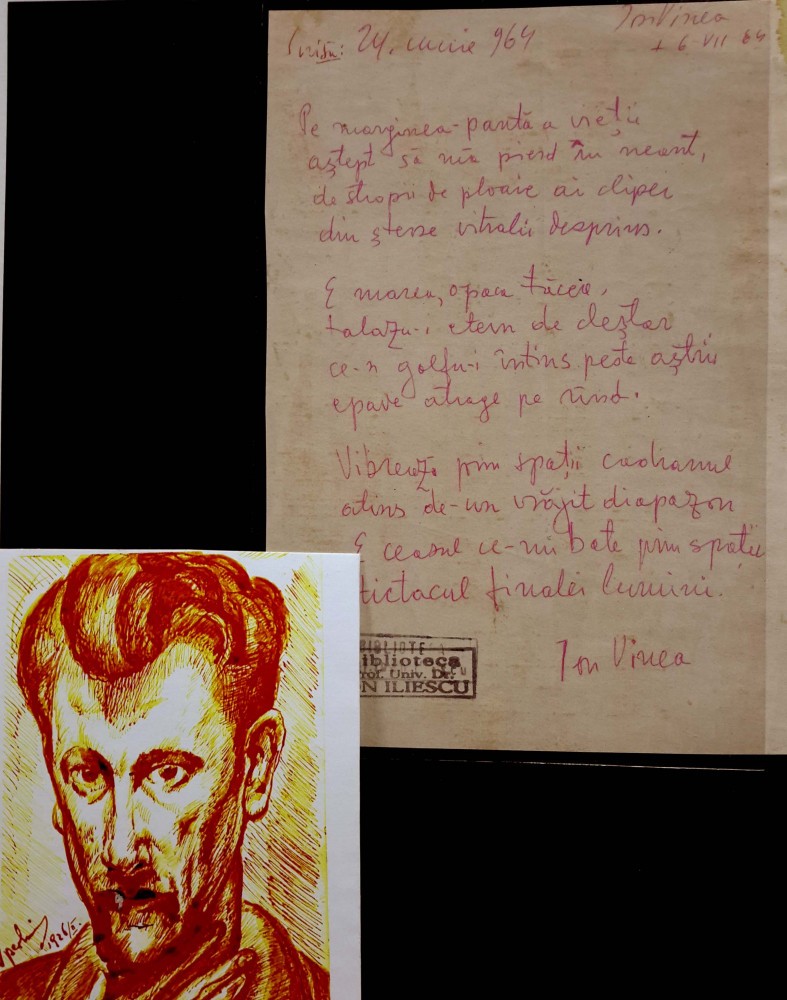 Scrisă: 24. iunie 964
Ion Vinea
+ 6-VII 64
Pe marginea-pantă a vieții
aștept să mă pierd în neant,
de stropii de ploaie ai clipei
din șterse vitralii desprins.
E marea, opaca tăcere,
talazu-i etern de cleștar
ce-n golfu-i întins peste aștrii
epave atrage pe rînd.
Vibrează prin spații cadranul
atins de-un vrăjit diapazon
E ceasul ce-mi bate prin spații
tictacul finalei lumini.
Ion Vinea
BIBLIOTE
iblioteca
rof. Univ. Dr.
ON ILIESCU
1926